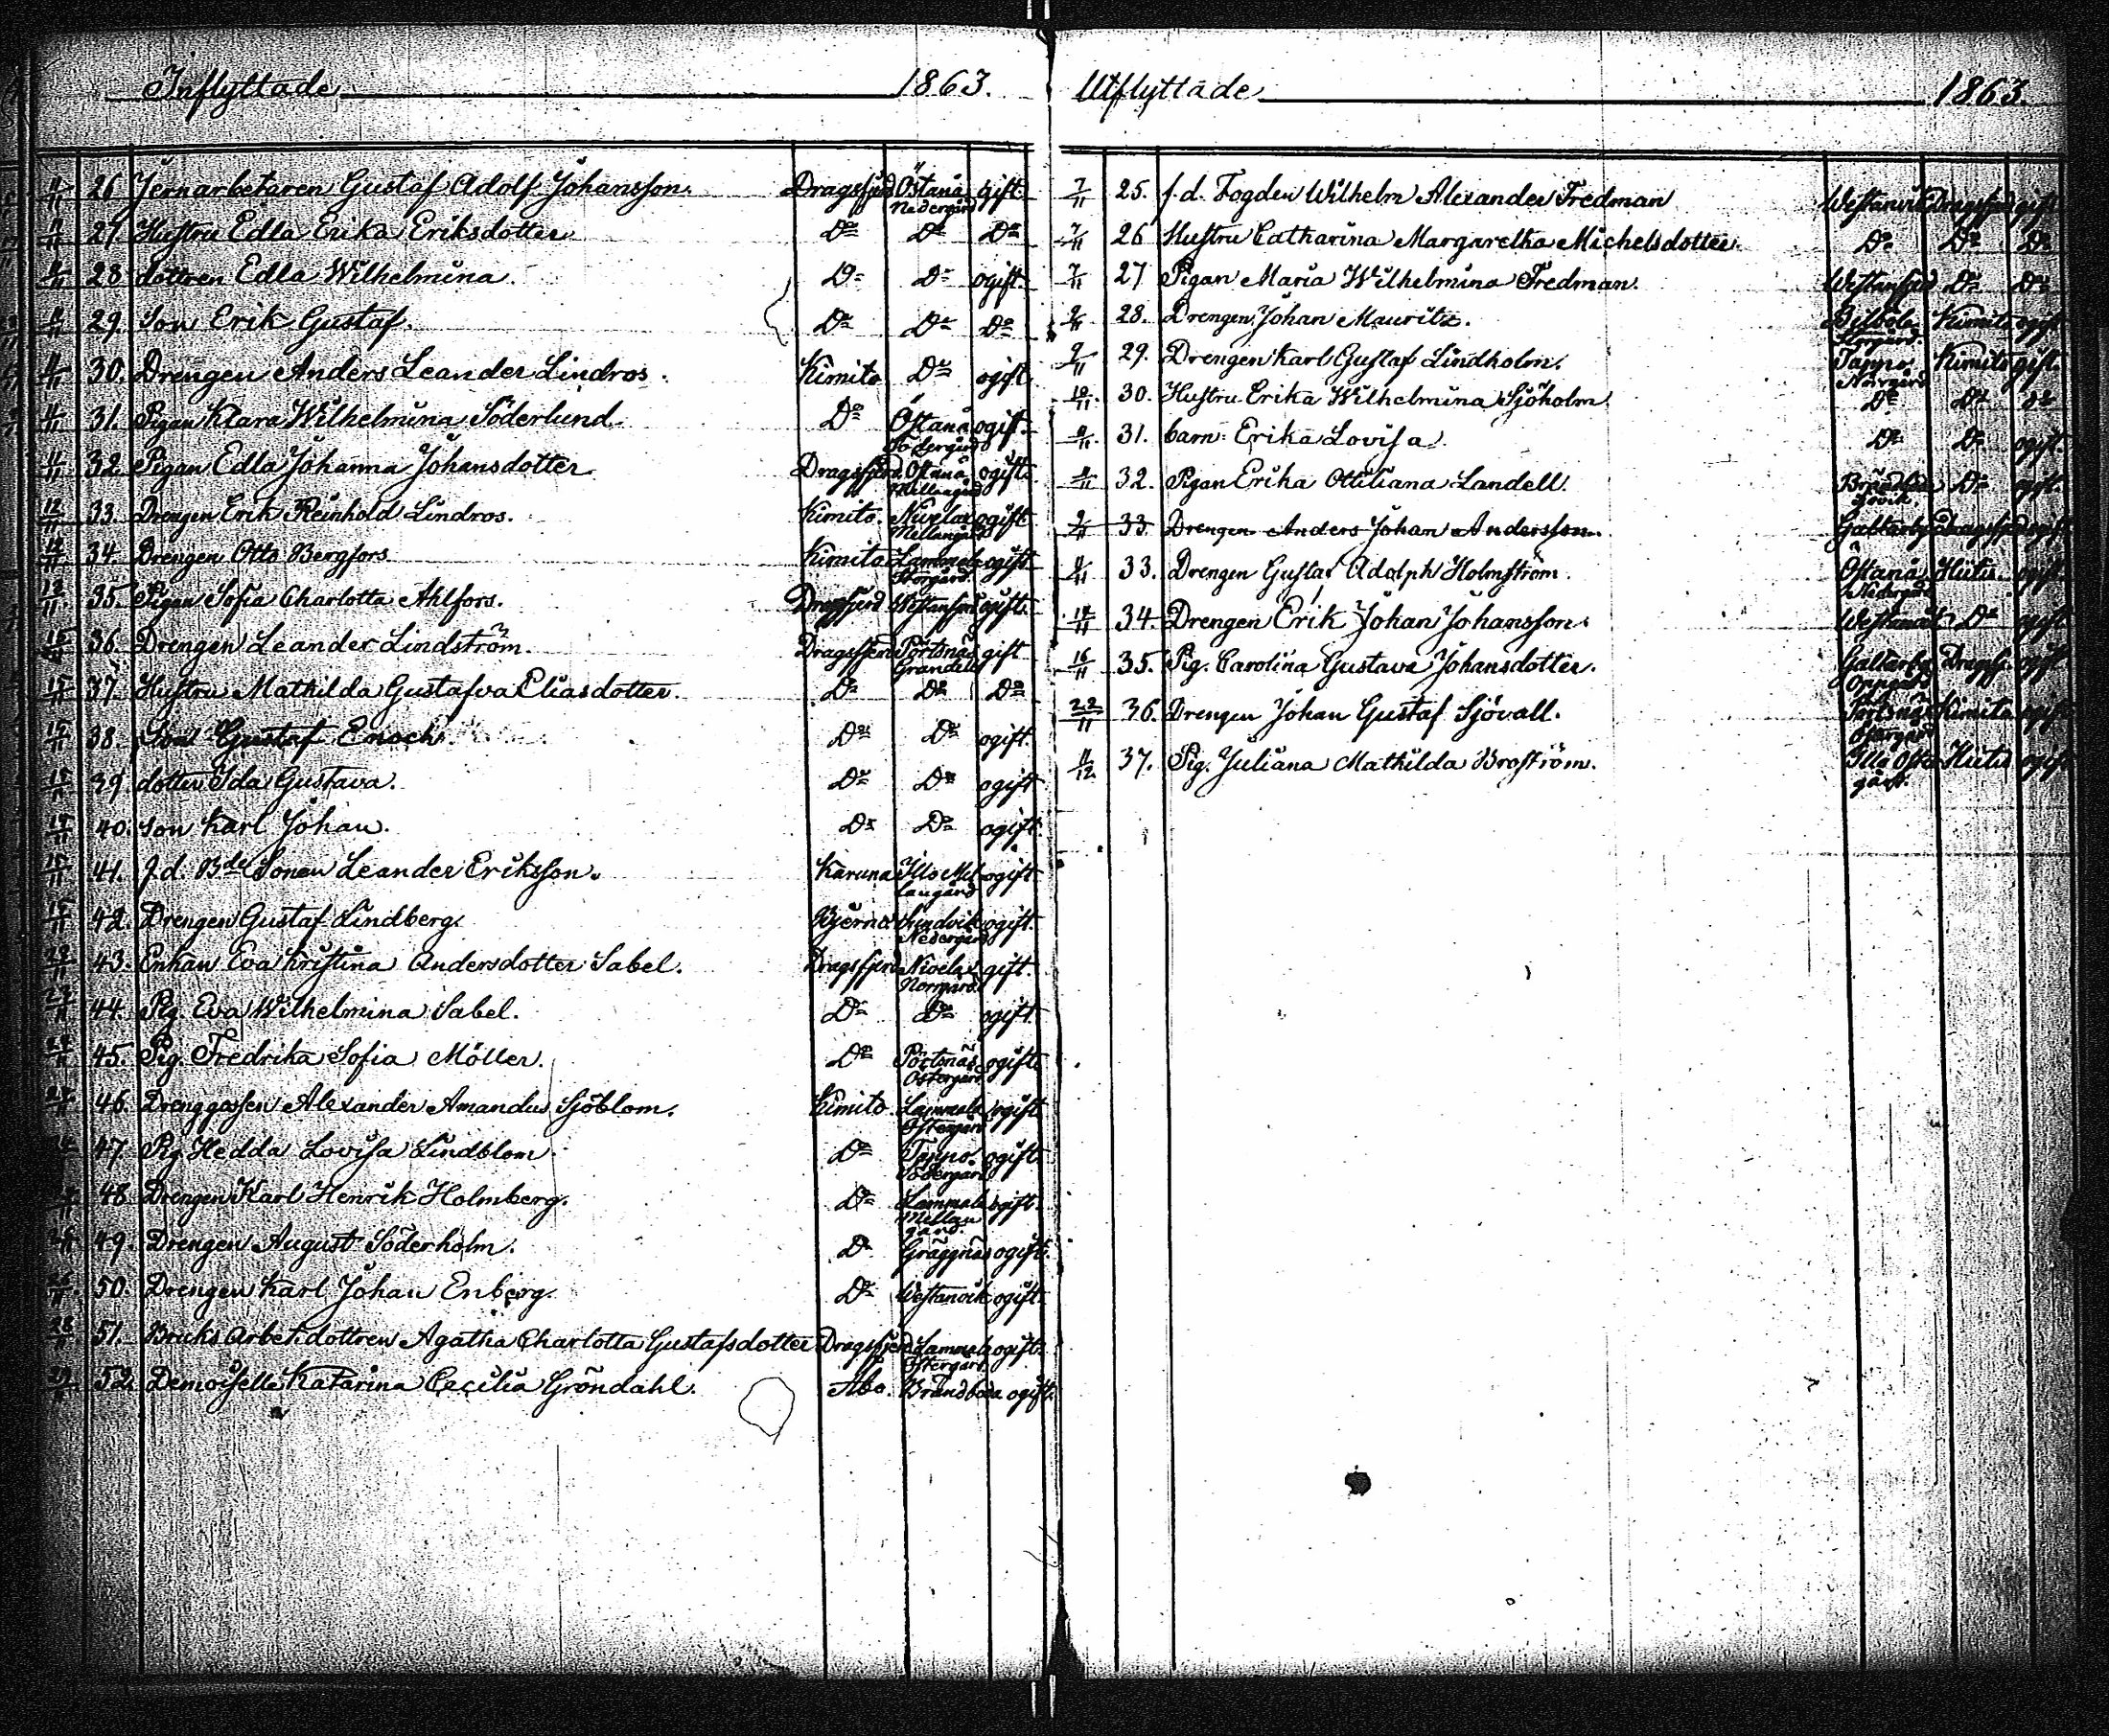 Inflyttade 1863.
4/11 26 Jernarbetaren Gustaf Adolf Johansson. Dragsfjerd Östanå Nedergård gift.
4/11 27. Hustru Edla Erika Eriksdotter Do Do Do
4/11 28 dottren Edla Wilhelmina. Do Do ogift.
4/11 29. Son Erik Gustaf. Do Do Do
4/11 30. Drengen Anders Leander Lindros. Kimito Do ogift
4/11 31. Pigan Klara Wilhelmina Söderlund Do Östanå ogift.
4/11 32. Pigan Edla Johanna Johansdotter Dragsfjerd Östanå Mellangård ogift.
12/11 33. Drengen Erik Reinhold Lindros. Kimito. Nivelax Mellangård ogift
12/11 34. Drengen Otto Bergfors Kimito Lammala Storgård. ogift
12/11 35. Pigan Sofia Charlotta Ahlfors. Dragsfjerd Westanfjerd ogift.
15/11 36. Drengen Leander Lindström. Dragsfjerd Pörtsnäs Grandell gift
15/11 37. Hustru Mathilda Gustafva Eliasdotter. Do Do Do
15/11 38. Son Gustaf Enoch. Do Do ogift.
15/11 39 dotter Ida Gustava. Do Do ogift
15/11 40. Son Karl Johan. Do Do ogift.
15/11 41. f.d. Bde Sonen Leander Eriksson. Karuna Illo Mellangård ogift
15/11 42. Drengen Gustaf Lindberg. Bjerno Sundvik Nedergård ogift.
43. Enkan Eva Kristina Andersdotter Sabel. Dragsfjerd Nivelax Norrgård. gift.
44. Pig. Eva Wilhelmina Sabel. Do Do ogift.
45. Pig. Fredrika Sofia Möller. Do Pörtsnäs Östergård ogift.
46. Drenggossen Alexander Amandus Sjöblom. Kimito Lammala Östergård ogift
47. Pig Hedda Lovisa Lindblom Do Tappo. Södergård ogift.
48. Drengen Karl Henrik Holmberg. Do Lammala Mellangård. ogift.
49. Drengen August Söderholm. Do Gräggnäs ogift.
50. Drengen Karl Johan Enberg. Do Westanvik ogift.
51. Bruks Arbet. dottren Agatha Charlotta Gustafsdotter Dragsfjerd Lammala Östergård. ogift.
52. Demoiselle Katarina Cecilia Gröndahl. Åbo. Brändboda ogift.
Utflyttade 1863.
7/11 25. f.d. Fogden Wilhelm Alexander Fredman Westanvik Dragsfjerd gift
7/11 26 Hustru Catharina Margaretha Michelsdotter. Do Do Do
7/11 27 Pigan Maria Wilhelmina Fredman. Westanfjerd Do Do
9/11 28. Drengen Johan Mauritz. Bilböle Storgård. Kimito ogift
9/11 29. Drengen Karl Gustaf Lindholm. Tappo Norrgård Kimito gift.
10/11 30. Hustru Erika Wilhelmina Sjöholm Do Do Do
31. barn: Erika Lovisa. Do Do ogift.
32. Pigan Erika Ottiliana Landell. Do ogift.
9/11 33 Drengen Anders Johan Andersson. Galtarby Dragsfjerd ogift
33. Drengen Gustaf Adolph Holmström. Östanå Nedergård Hitis ogift.
34. Drengen Erik Johan Johansson. Do ogift
16/11 35. Pig. Carolina Gustava Johansdotter. Galtarby Dragsf. ogift
22/11 36. Drengen Johan Gustaf Sjövall. Pörtsnäs Östergård Kimito ogift
4/12 37. Pig. Juliana Mathilda Broström. Illo Östergård. Hitis ogift